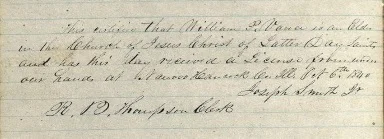 This certifies that William P. Vance is an Elder
in the Church of Jesus Christ of Latter Day Saints
and has this day received a License from under
our hands at Nauvoo Hancock Co Ills Oct 6th 1840
Joseph Smith Jr
R. B. Thompson Clerk